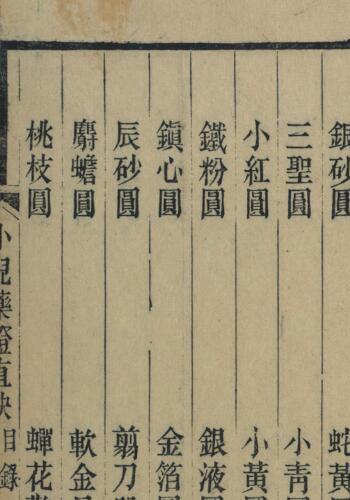 銀砂圓 蛇黃
三聖圓 小青圓
小紅圓 小黃圓
鐵粉圓 銀液圓
鎮心圓 金箔圓
辰砂圓 剪刀
麝蟾圓 軟金
桃枝圓 蟬花
小兒藥證直訣 目錄